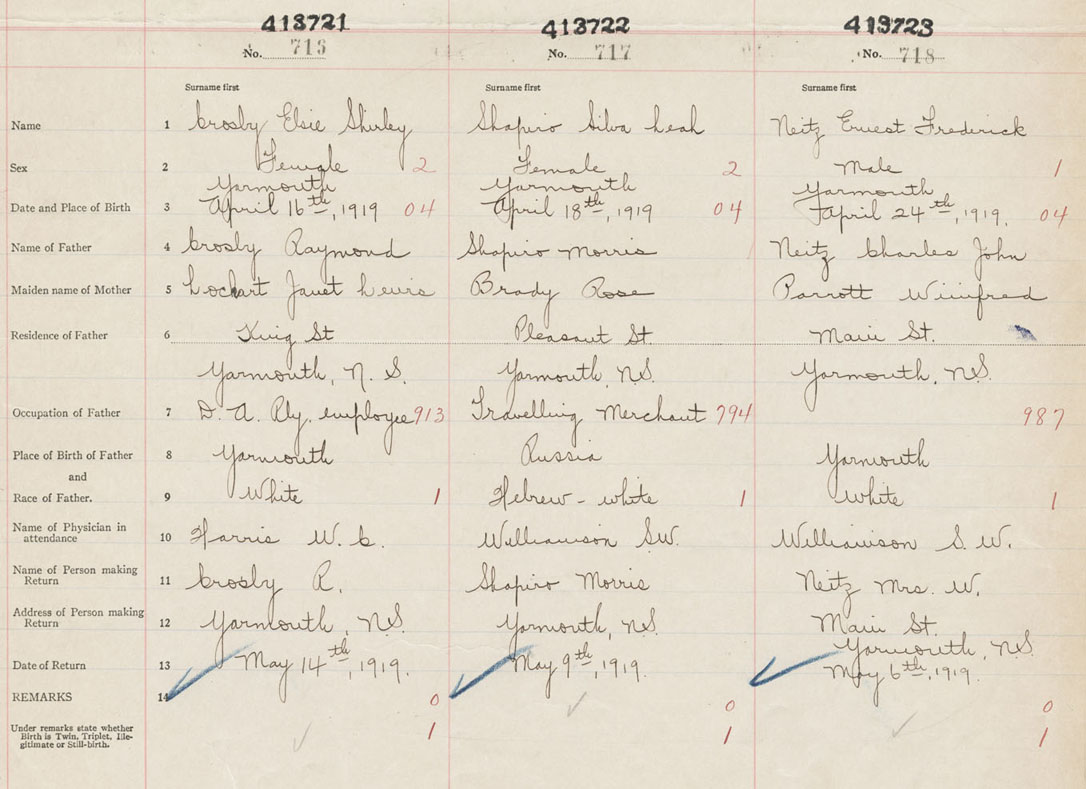 413721 413722 413723
No. 716 No. 717 No. 718
Surname first Surname first Surname first
Name 1 Crosby Elsie Shirley Shapiro Silva Leah Neitz Ernest Frederick
Sex 2 Female 2 Female 2 Male 1
Yarmouth Yarmouth Yarmouth
Date and Place of Birth 3 April 16th, 1919 04 April 18th, 1919 04 April 24th, 1919. 04
Name of Father 4 Crosby Raymond Shapiro Morris Neitz Charles John
Maiden name of Mother 5 Lockart Janet Lewis Brady Rose Parrott Winifred
Residence of Father 6 King St Pleasant St. Main St.
Yarmouth, N. S. Yarmouth, N.S. Yarmouth, N.S.
Occupation of Father 7 D. A. Rly. employee 913 Travelling Merchant 794 987
Place of Birth of Father 8 Yarmouth Russia Yarmouth
and
Race of Father. 9 White 1 Hebrew - white 1 White 1
Name of Physician in
attendance 10 Harris W. C. Williamson S.W. Williamson S. W.
Name of Person making
Return 11 Crosby R. Shapiro Morris Neitz Mrs. W.
Address of Person making
Return 12 Yarmouth, N.S. Yarmouth, N.S. Main St.
Yarmouth, N.S.
Date of Return 13 May 14th, 1919. May 9th, 1919. May 6th, 1919.
REMARKS 14 0 0 0
Under remarks state whether
Birth is Twin, Triplet, Ille-
gitimate or Still-birth. 1 1 1